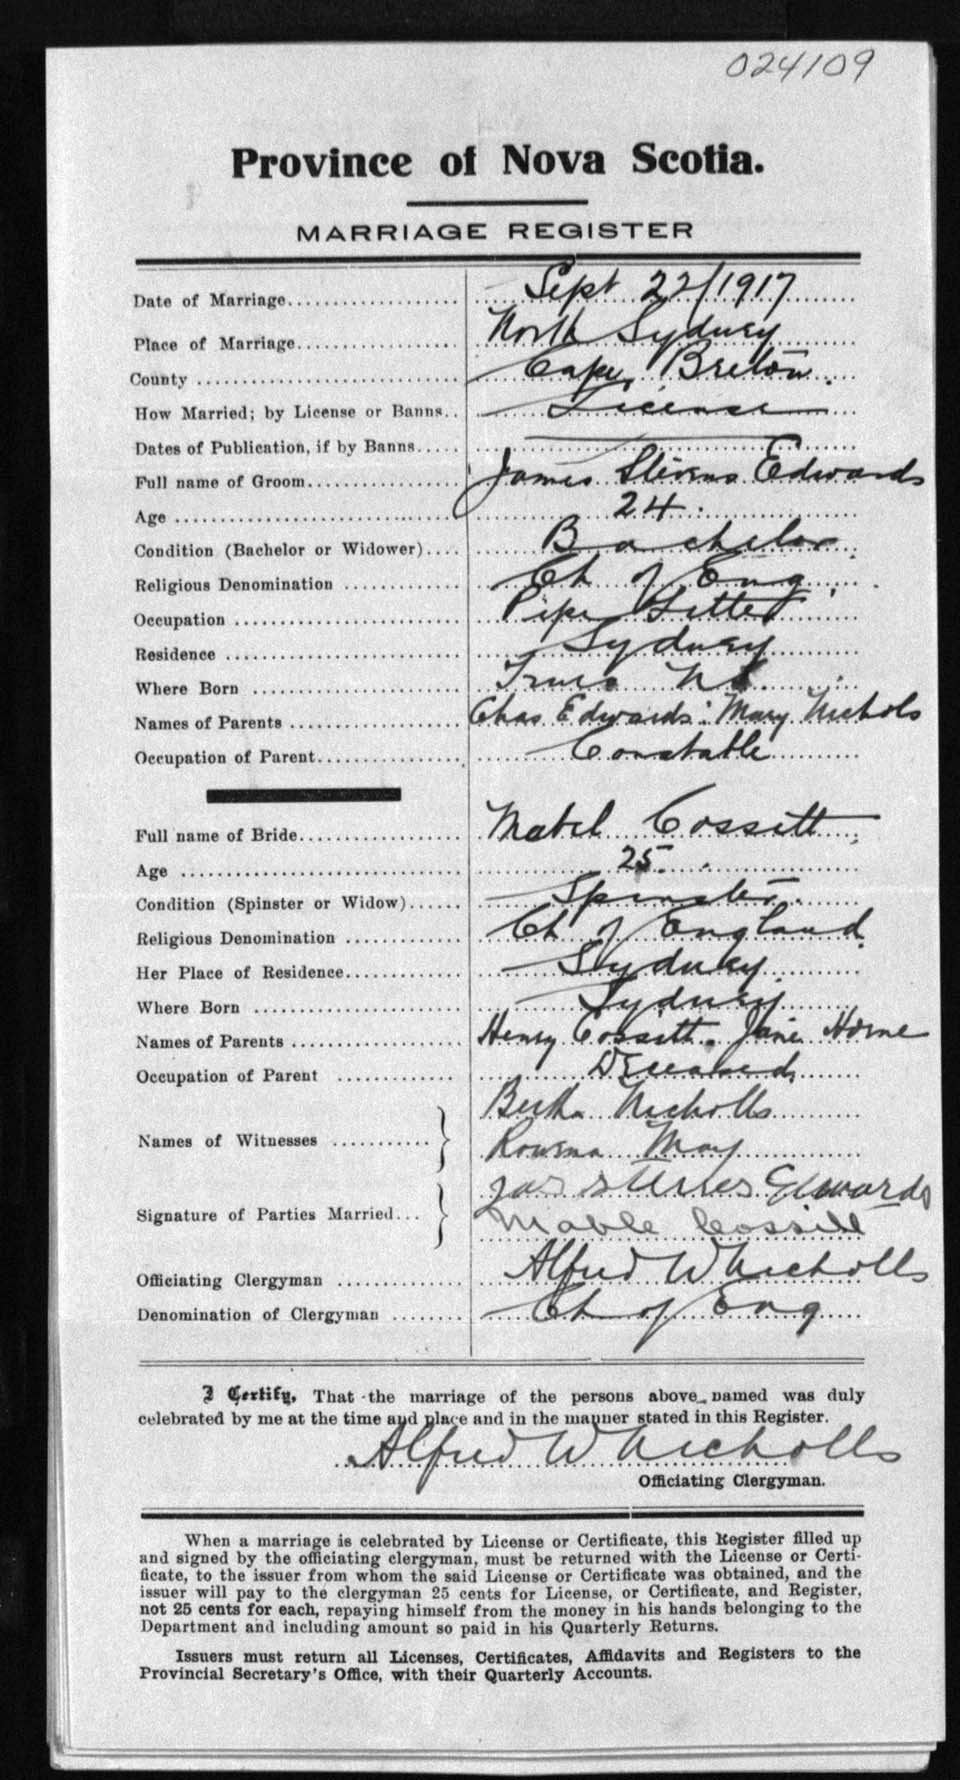 024109
Province of Nova Scotia.
MARRIAGE REGISTER
Date of Marriage Sept 22/1917
Place of Marriage North Sydney
County Cape Breton.
How Married; by License or Banns License
Dates of Publication, if by Banns
Full name of Groom James Stevens Edwards
Age 24
Condition (Bachelor or Widower) Bachelor
Religious Denomination Ch of Eng
Occupation Pipe Fitter
Residence Sydney
Where Born Truro N S
Names of Parents Chas Edwards Mary Nichols
Occupation of Parent Constable
Full name of Bride Mabel Cossitt
Age 25
Condition (Spinster or Widow) Spinster
Religious Denomination Ch of England
Her Place of Residence Sydney
Where Born Sydney
Names of Parents Henry Cossitt. Jane Horne
Occupation of Parent Deceased
Bertha Nicholls
Names of Witnesses
Rowena May
Jas Edwards
Signature of Parties Married
Mable Cossitt
Officiating Clergyman Alfred W Nicholls
Denomination of Clergyman Ch of Eng
I Certify, That the marriage of the persons above named was duly
celebrated by me at the time and place and in the manner stated in this Register.
Alfred W Nicholls
Officiating Clergyman.
When a marriage is celebrated by License or Certificate, this Register filled up
and signed by the officiating clergyman, must be returned with the License or Certi-
ficate, to the issuer from whom the said License or Certificate was obtained, and the
issuer will pay to the clergyman 25 cents for License, or Certificate, and Register,
not 25 cents for each, repaying himself from the money in his hands belonging to the
Department and including amount so paid in his Quarterly Returns.
Issuers must return all Licenses, Certificates, Affidavits and Registers to the
Provincial Secretary's Office, with their Quarterly Accounts.